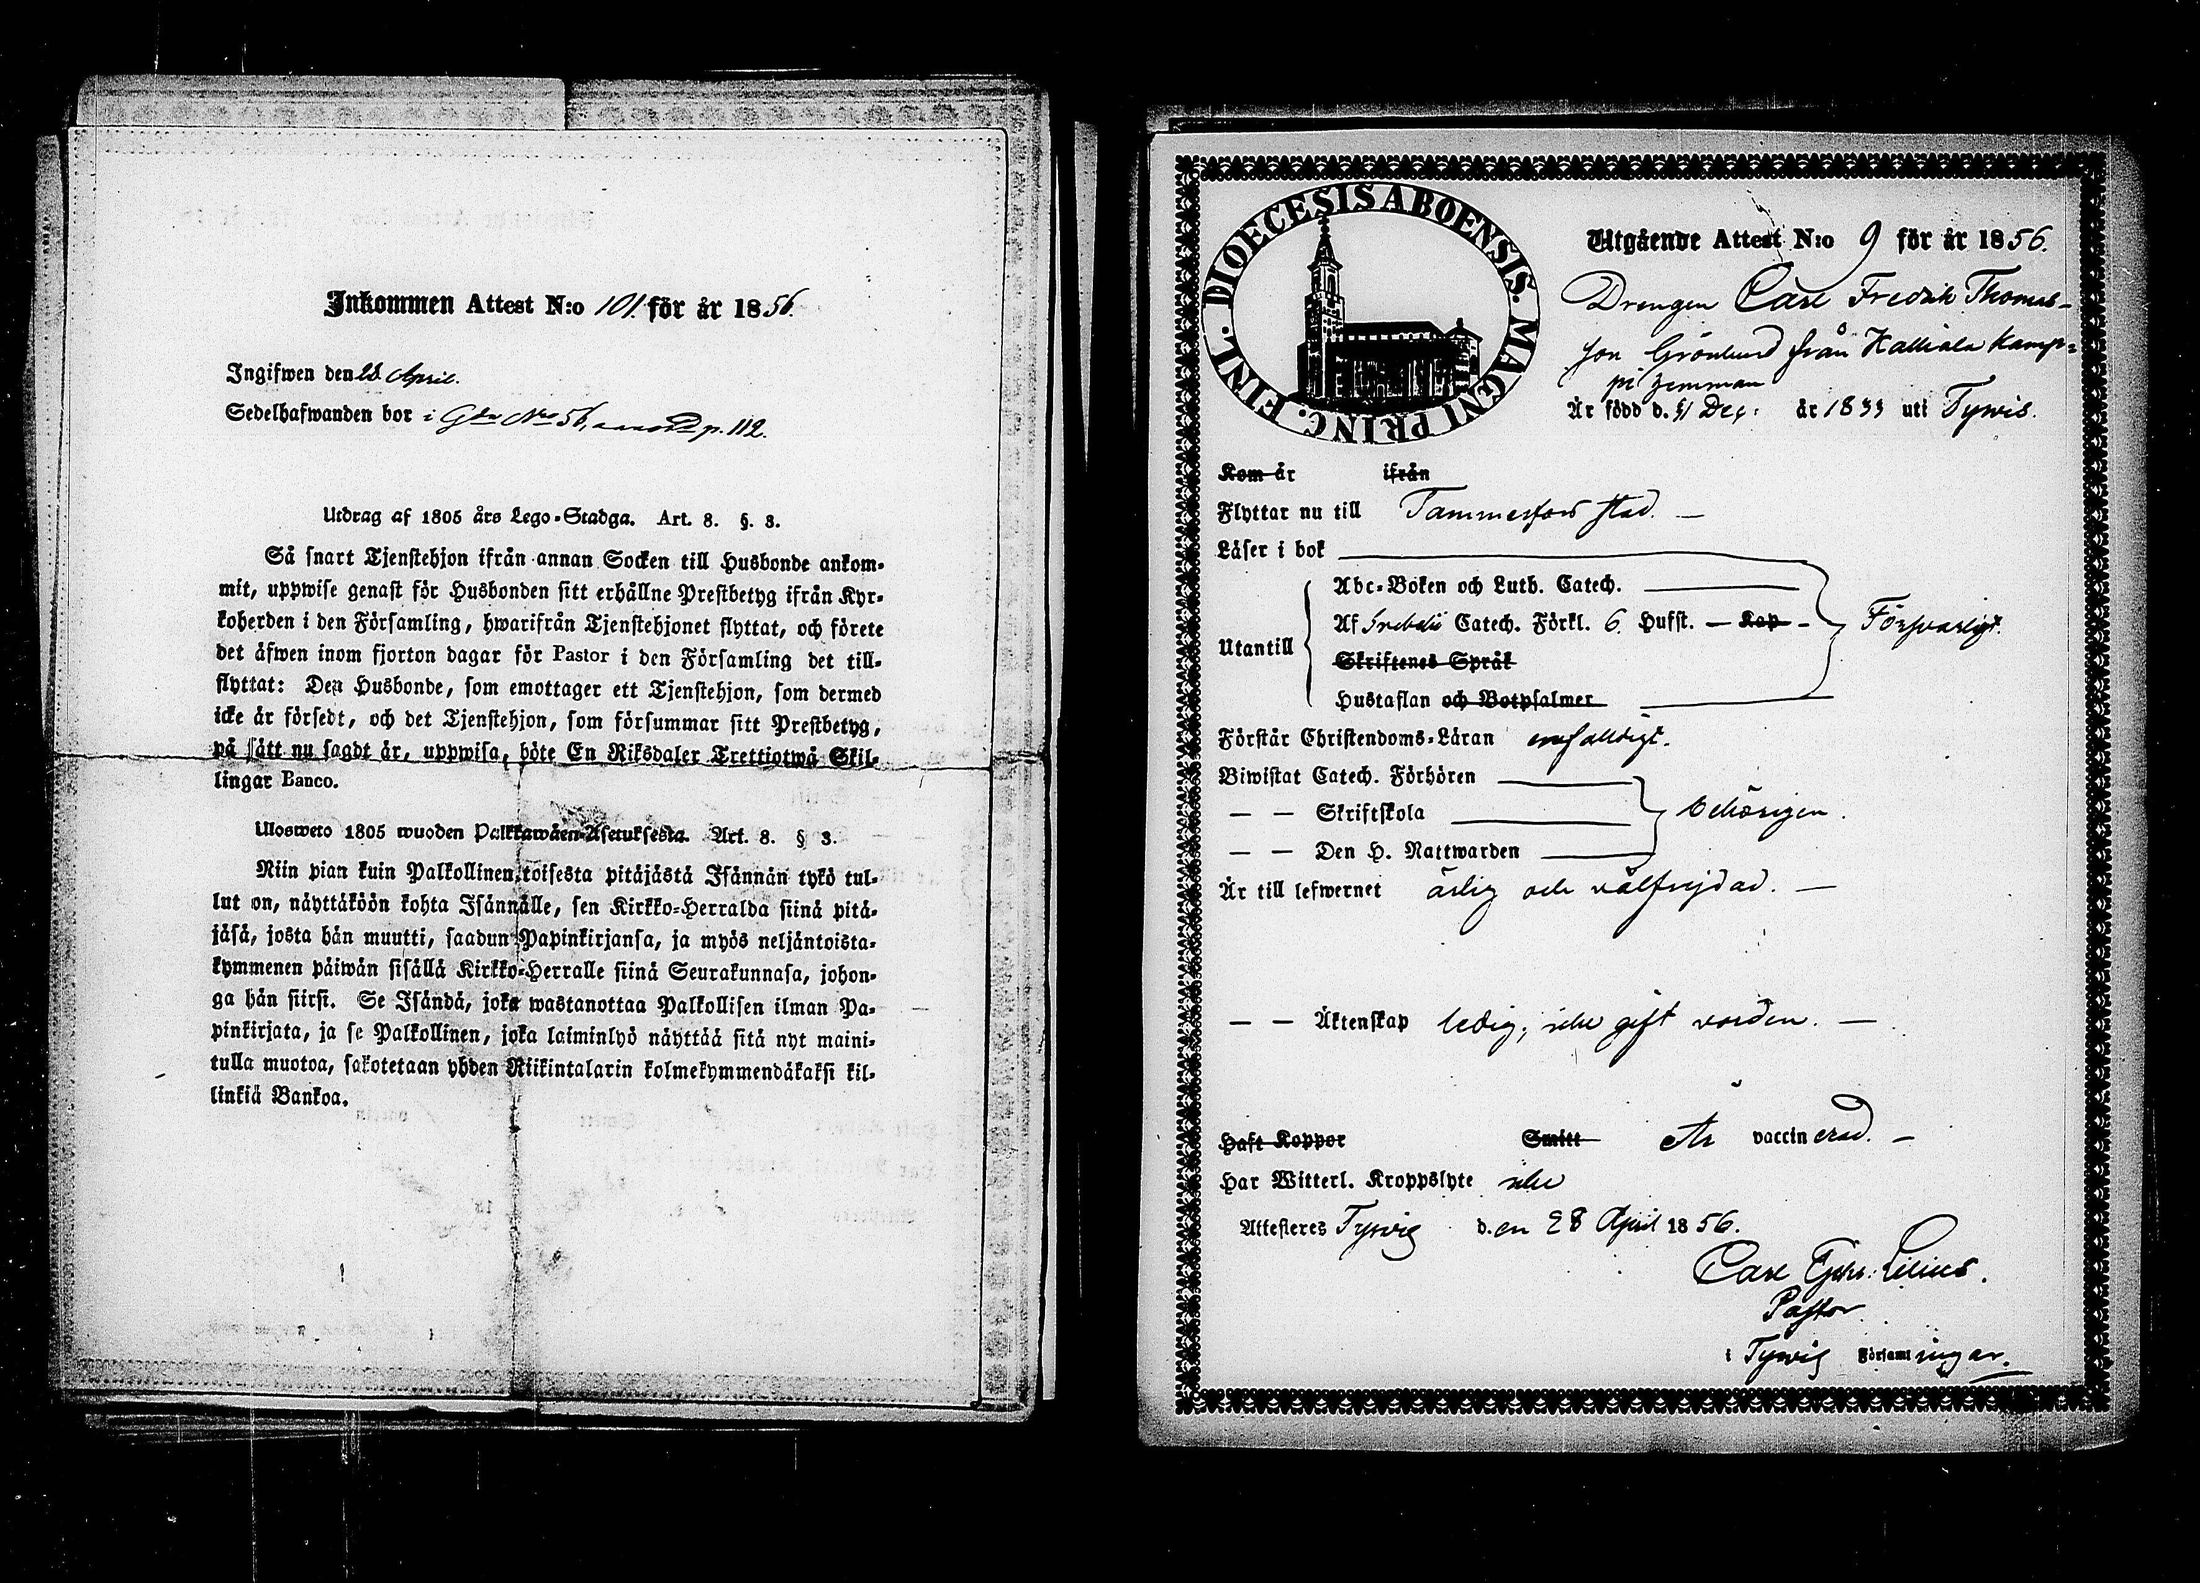 Inkommen Attest N:o 101. för år 1856.
Ingifwen den 28. April.
Sedelhafwanden bor i Gdn No 56, p. 112.
Utdrag af 1805 års Lego-Stadga. Art. 8. §. 3.
Så snart Tjenstehjon ifrån annan Socken till Husbonde ankom-
mit, uppwise genast för Husbonden sitt erhållne Prestbetyg ifrån Kyr-
koherden i den Församling, hwarifrån Tjenstehjonet flyttat, och förete
det äfwen inom fjorton dagar för Pastor i den Församling det till-
flyttat: Den Husbonde, som emottager ett Tjenstehjon, som dermed
icke är försedt, och det Tjenstehjon, som försummar sitt Prestbetyg,
på sätt nu sagdt är, uppwisa, böte En Riksdaler Trettiotwå Skil-
lingar Banco.
Ulosweto 1805 wuoden Palkkawäen-Asetuksesta. Art. 8. § 3.
Niin pian kuin Palkollinen toisesta pitäjästä Isännän tykö tul-
lut on, näyttäköön kohta Isännälle, sen Kirkko-Herralda siinä pitä-
jäsä, josta hän muutti, saadun Papinkirjansa, ja myös neljäntoista-
kymmenen päiwän sisällä Kirkko-Herralle siinä Seurakunnasa, johon-
ga hän siirsi. Se Isändä, joka wastanottaa Palkollisen ilman Pa-
pinkirjata, ja se Palkollinen, joka laiminlyö näyttää sitä nyt maini-
tulla muotoa, sakotetaan yhden Riikintalarin kolmekymmendäkaksi kil-
linkiä Bankoa.
DIOECESIS ABOENSIS. MAGNI PRINC. FINL.
Utgående Attest N:o 9 för år 1856.
Drengen Carl Fredrik Thomas-
son Grönlund från Kalliala Kamp-
pi hemman
Är född d. 31 Dec: år 1833 uti Tyrvis.
Kom år ifrån
Flyttar nu till Tammerfors stad. —
Läser i bok
Abc-Boken och Luth. Catech.
Utantill
Af Svebelii Catech. Förkl. 6. Hufst. — Kap —
Försvarligt.
Skriftenes Språk
Hustaflan och Botpsalmer
Förstår Christendoms-Läran enfalldigt.
Biwistat Catech. Förhören
— — Skriftskola
behörigen.
— — Den H. Nattwarden
Är till lefwernet ärlig och välfrejdad. —
— — Äktenskap ledig, icke gift vorden. —
Haft Koppor Smitt Är vaccinerad. —
Har Witterl. Kroppslyte icke
Attesteres Tyrvis d. en 28 April 1856.
Carl Lilius.
Pastor
i Tyrvis Församlingar.